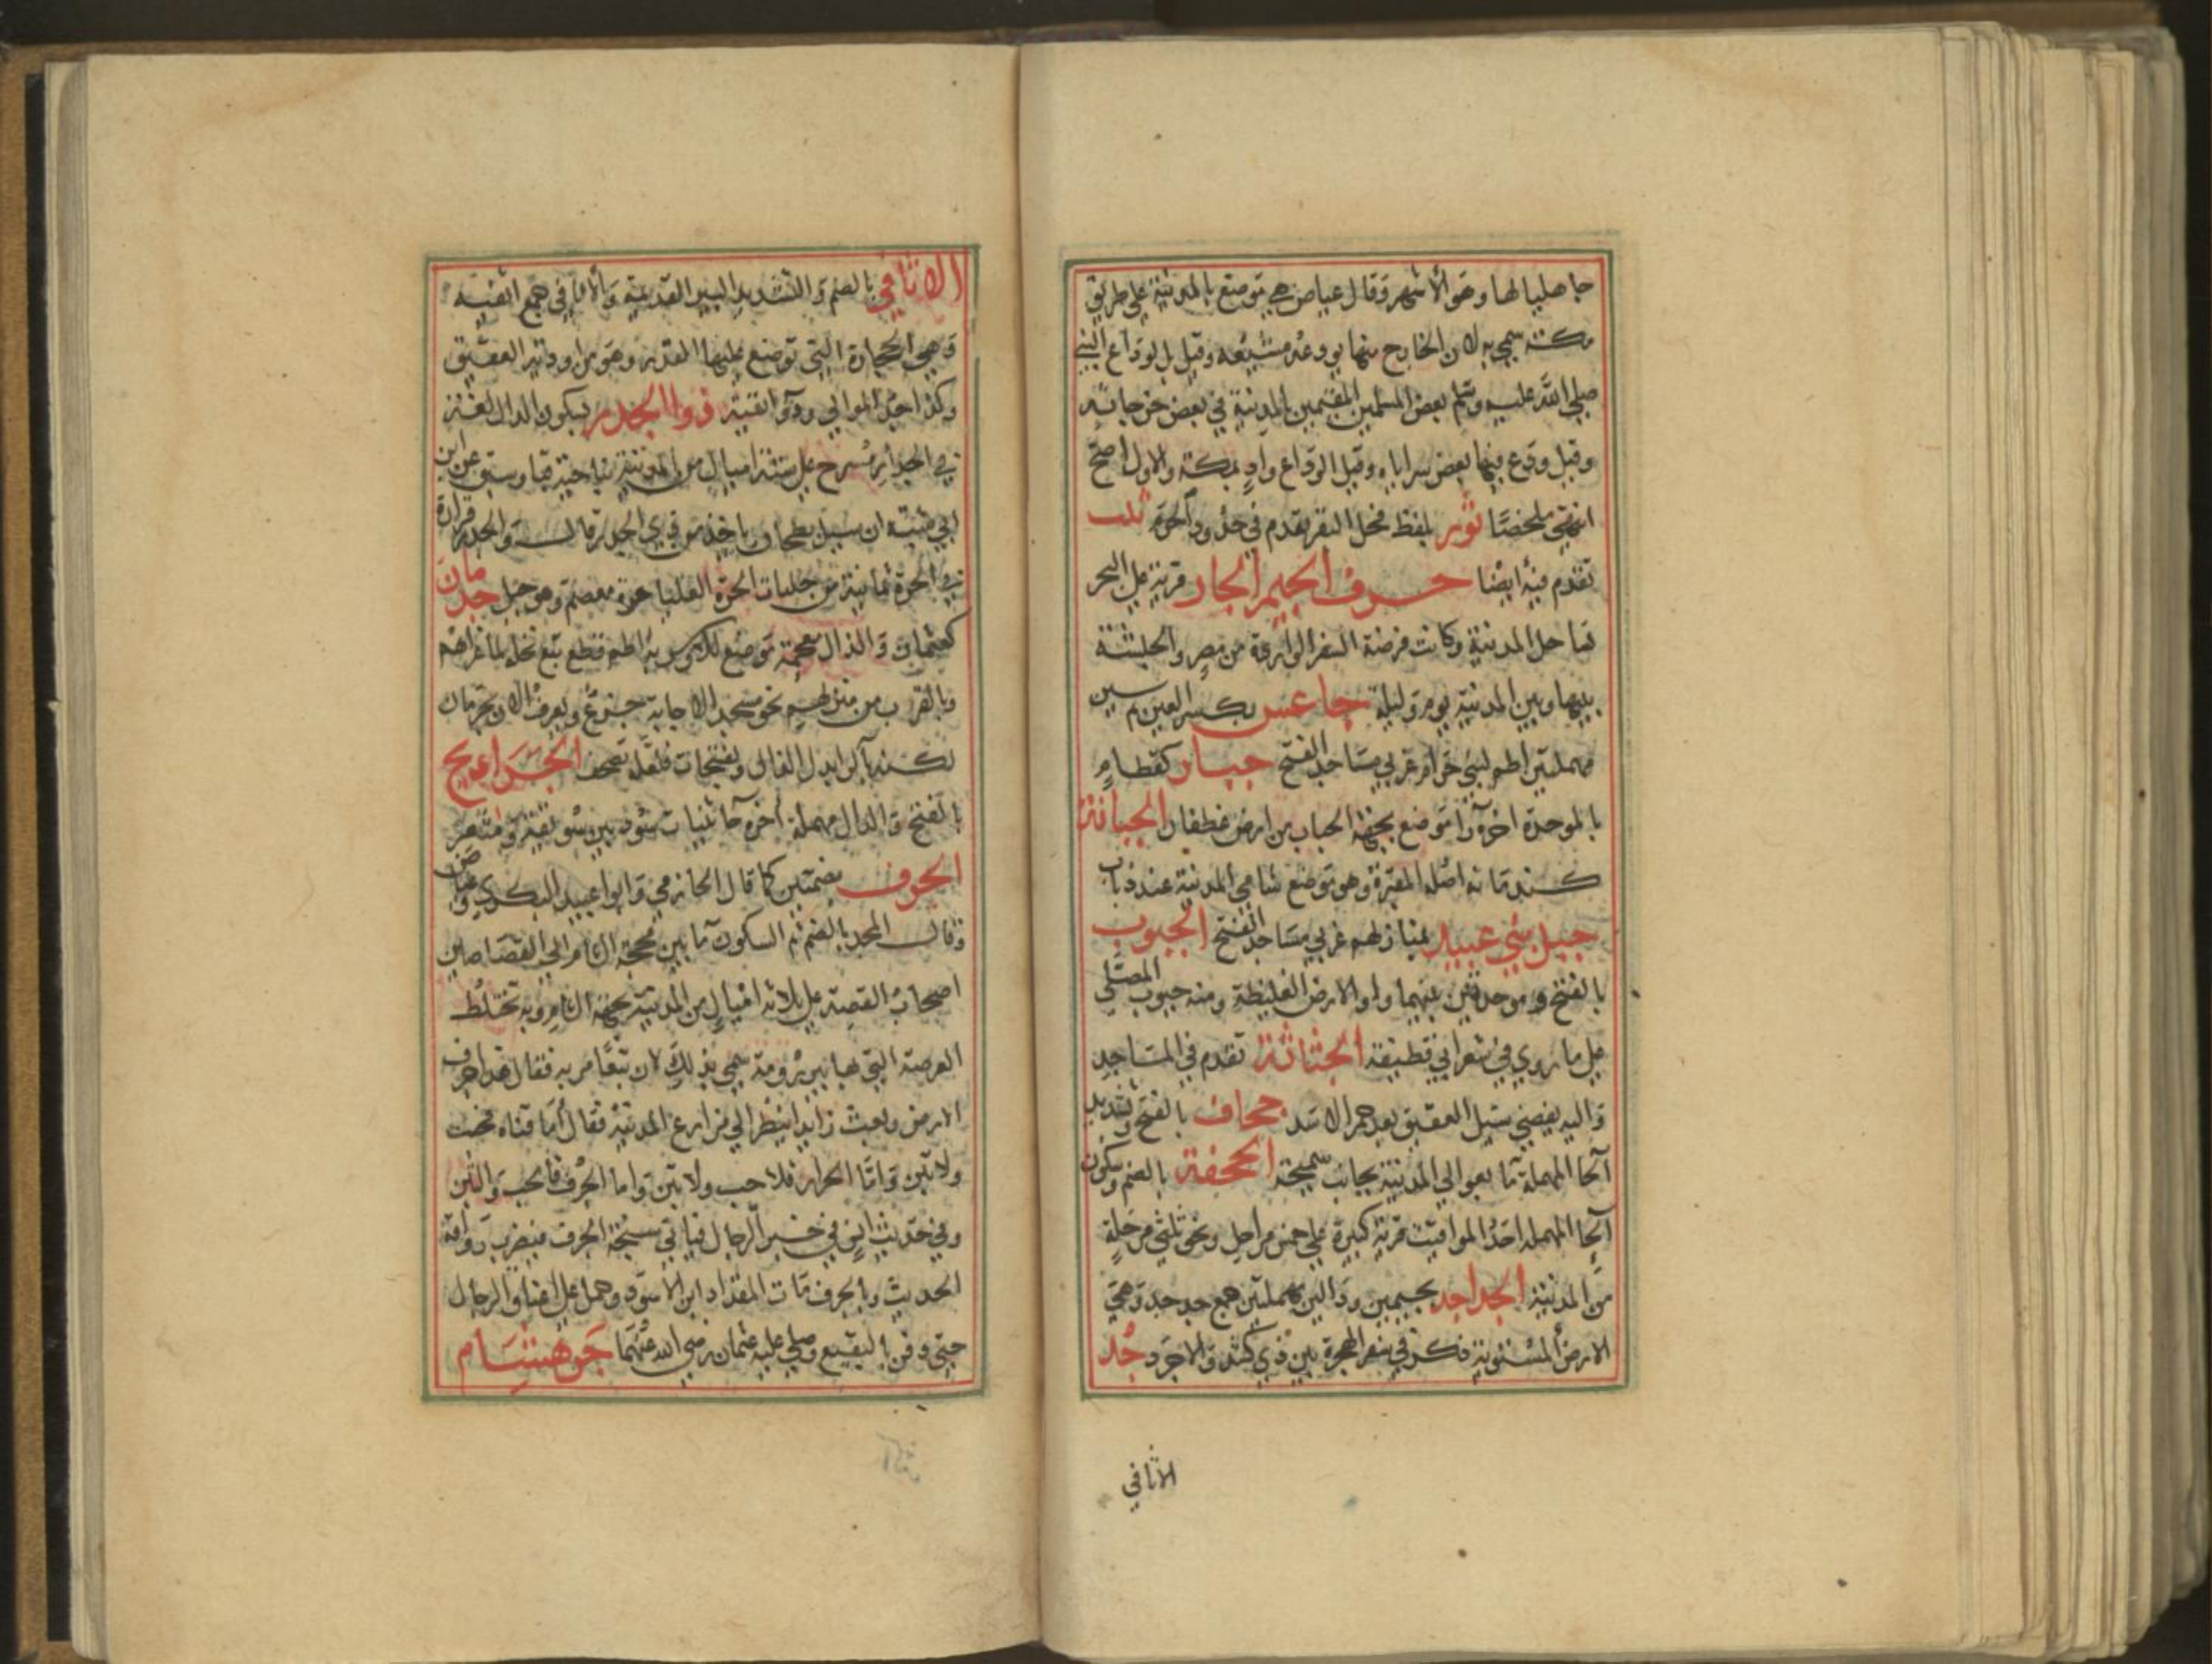 جاهليا لها وهو الأشهر وقال عياض هي موضع بالمدينة على طريق
مكة سمي به لان الخارج منها يودعه مشيعه وقيل بل لوداع النبي
صلى الله عليه وسلم بعض المسلمين المقيمين بالمدينة في بعض خرجاته
وقيل ودع فيها بعض سراياه وقيل الوداع واد بمكة والاول اصح
انتهى ملخصا ثور بلفظ فحل البقر تقدم في حدود الحرم ثيب
تقدم فيه ايضا حرف الجيم الجار قرية على البحر
ساحل المدينة وكانت فرضة السفن الواردة من مصر والحبشة
بينها وبين المدينة يوم وليلة جاعس بكسر العين ثم سين
مهملتين اطم لبني حرام غربي مساجد الفتح جبار كقطام
بالموحدة اخره را موضع بجهة الجباب من ارض غطفان الجبانة
كندمانه اصله المقبرة وهو موضع شامي المدينة عند ذباب
جبل بني عبيد بمنازلهم غربي مساجد الفتح الجبوب
بالفتح وموحدتين بينهما واو الارض الغليظة ومنه جبوب المصلى
على ما روي في شعر ابي قطيفة الجثاثة تقدم في المساجد
واليه يفضي سيل العقيق بعد حمر الاسد جحاف بالفتح وتشديد
الحا المهملة ما بعوالي المدينة بجانب سميحة الجحفة بالضم وسكون
الحا المهملة احد المواقيت قرية كبيرة على خمس مراحل ونحو ثلثي مرحلة
من المدينة الجداجد بجيمين ودالين مهملتين جمع جدجد وهي
الارض المستوية ذكر في سفر الهجرة بين ذي كشد والاجرد جد
الاثافي
الاثافي بالضم والتشديد البير القديمة والاثافي جمع اثفيه
وهي الحجارة التي توضع عليها القدر وهو من اودية العقيق
وكذا جبل الموالي وذو اثفية ذو الجدر بسكون الدال لغة
في الجدار مسرح على ستة اميال من المدينة بناحية قبا وسبق عن ابن
ابي شبة ان سيل بطحان ياخذ من ذي الجدر قال والجدر قرارة
في الحرة يمانية من حليات الحرة العليا حرة معصم وهو جبل جذمان
كعثمان والذال معجمة موضع للاوس به اطم قطع تبع نخله لما غزاهم
وبالقرب من منزلهم نحو مسجد الاجابة جزع ويعرف الان بجرمان
الجرداويح
بالفتح والدال مهملة اخره حا ثنيات سود بين سويقة ومثعر
الجرف بضمتين كما قال الحازمي وابو عبيد البكري وعياض
وقال المجد بالضم ثم السكون ما بين محجة الشام الى القصاصين
اصحاب القصة على ثلاثة اميال من المدينة بجهة الشام وبه تختلط
العرصة التي بها بير رومة سمي بذلك لان تبعا مر به فقال هذا جرف
الارض وبعث رائدا ينظر الى مزارع المدينة فقال اما قناة فحب
ولا تبن واما الحرار فلا حب ولا تبن واما الجرف فالحب والتبن
وفي حديث انس في خبر الدجال فياتي سبخة الجرف فيضرب رواقه
الحديث وبالجرف مات المقداد ابن الاسود وحمل على اعناق الرجال
حتى دفن بالبقيع وصلى عليه عثمان رضي الله عنهما جر هشام